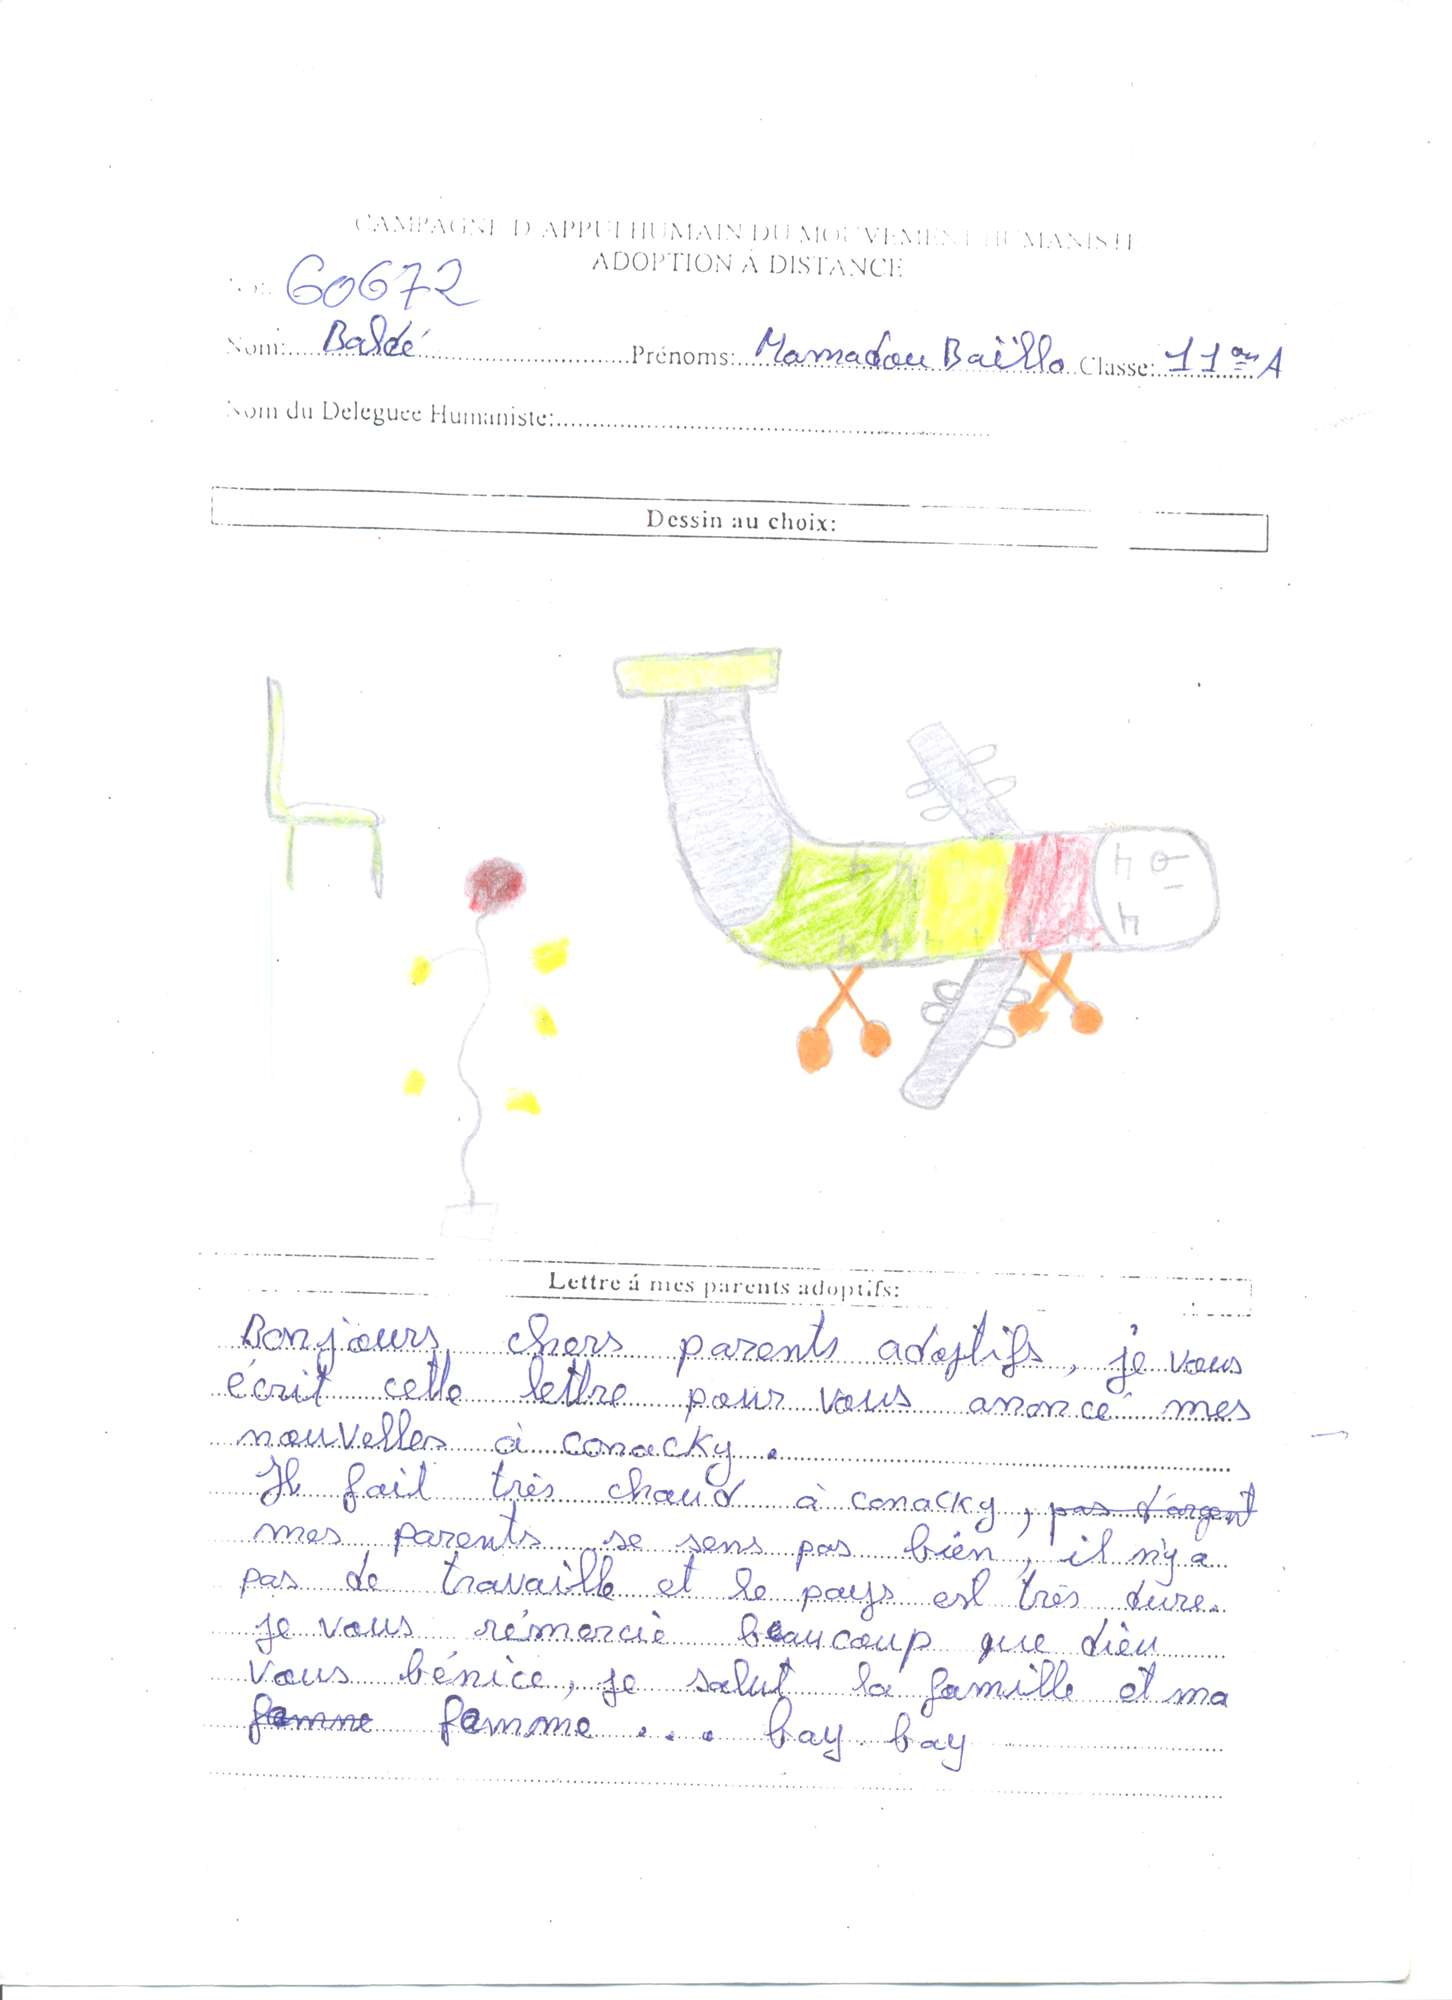 CAMPAGNE D'APPUI HUMAIN DU MOUVEMENT HUMANISTE
ADOPTION À DISTANCE
60672
Nom: Baldé Prénoms: Mamadou Baïllo Classe: 11 A
Nom du Deleguee Humaniste:
Dessin au choix:
Lettre á mes parents adoptifs:
Bonjours chers parents adoptifs, je vous
écrit cette lettre pour vous anoncé mes
nouvelles à conacky.
Il fait très chaud à conacky, pas d'argent
mes parents se sens pas bien, il n'y a
pas de travaille et le pays est très dure.
je vous rémercie beaucoup que dieu
vous bénice, je salut la famille et ma
famme femme ... bay bay